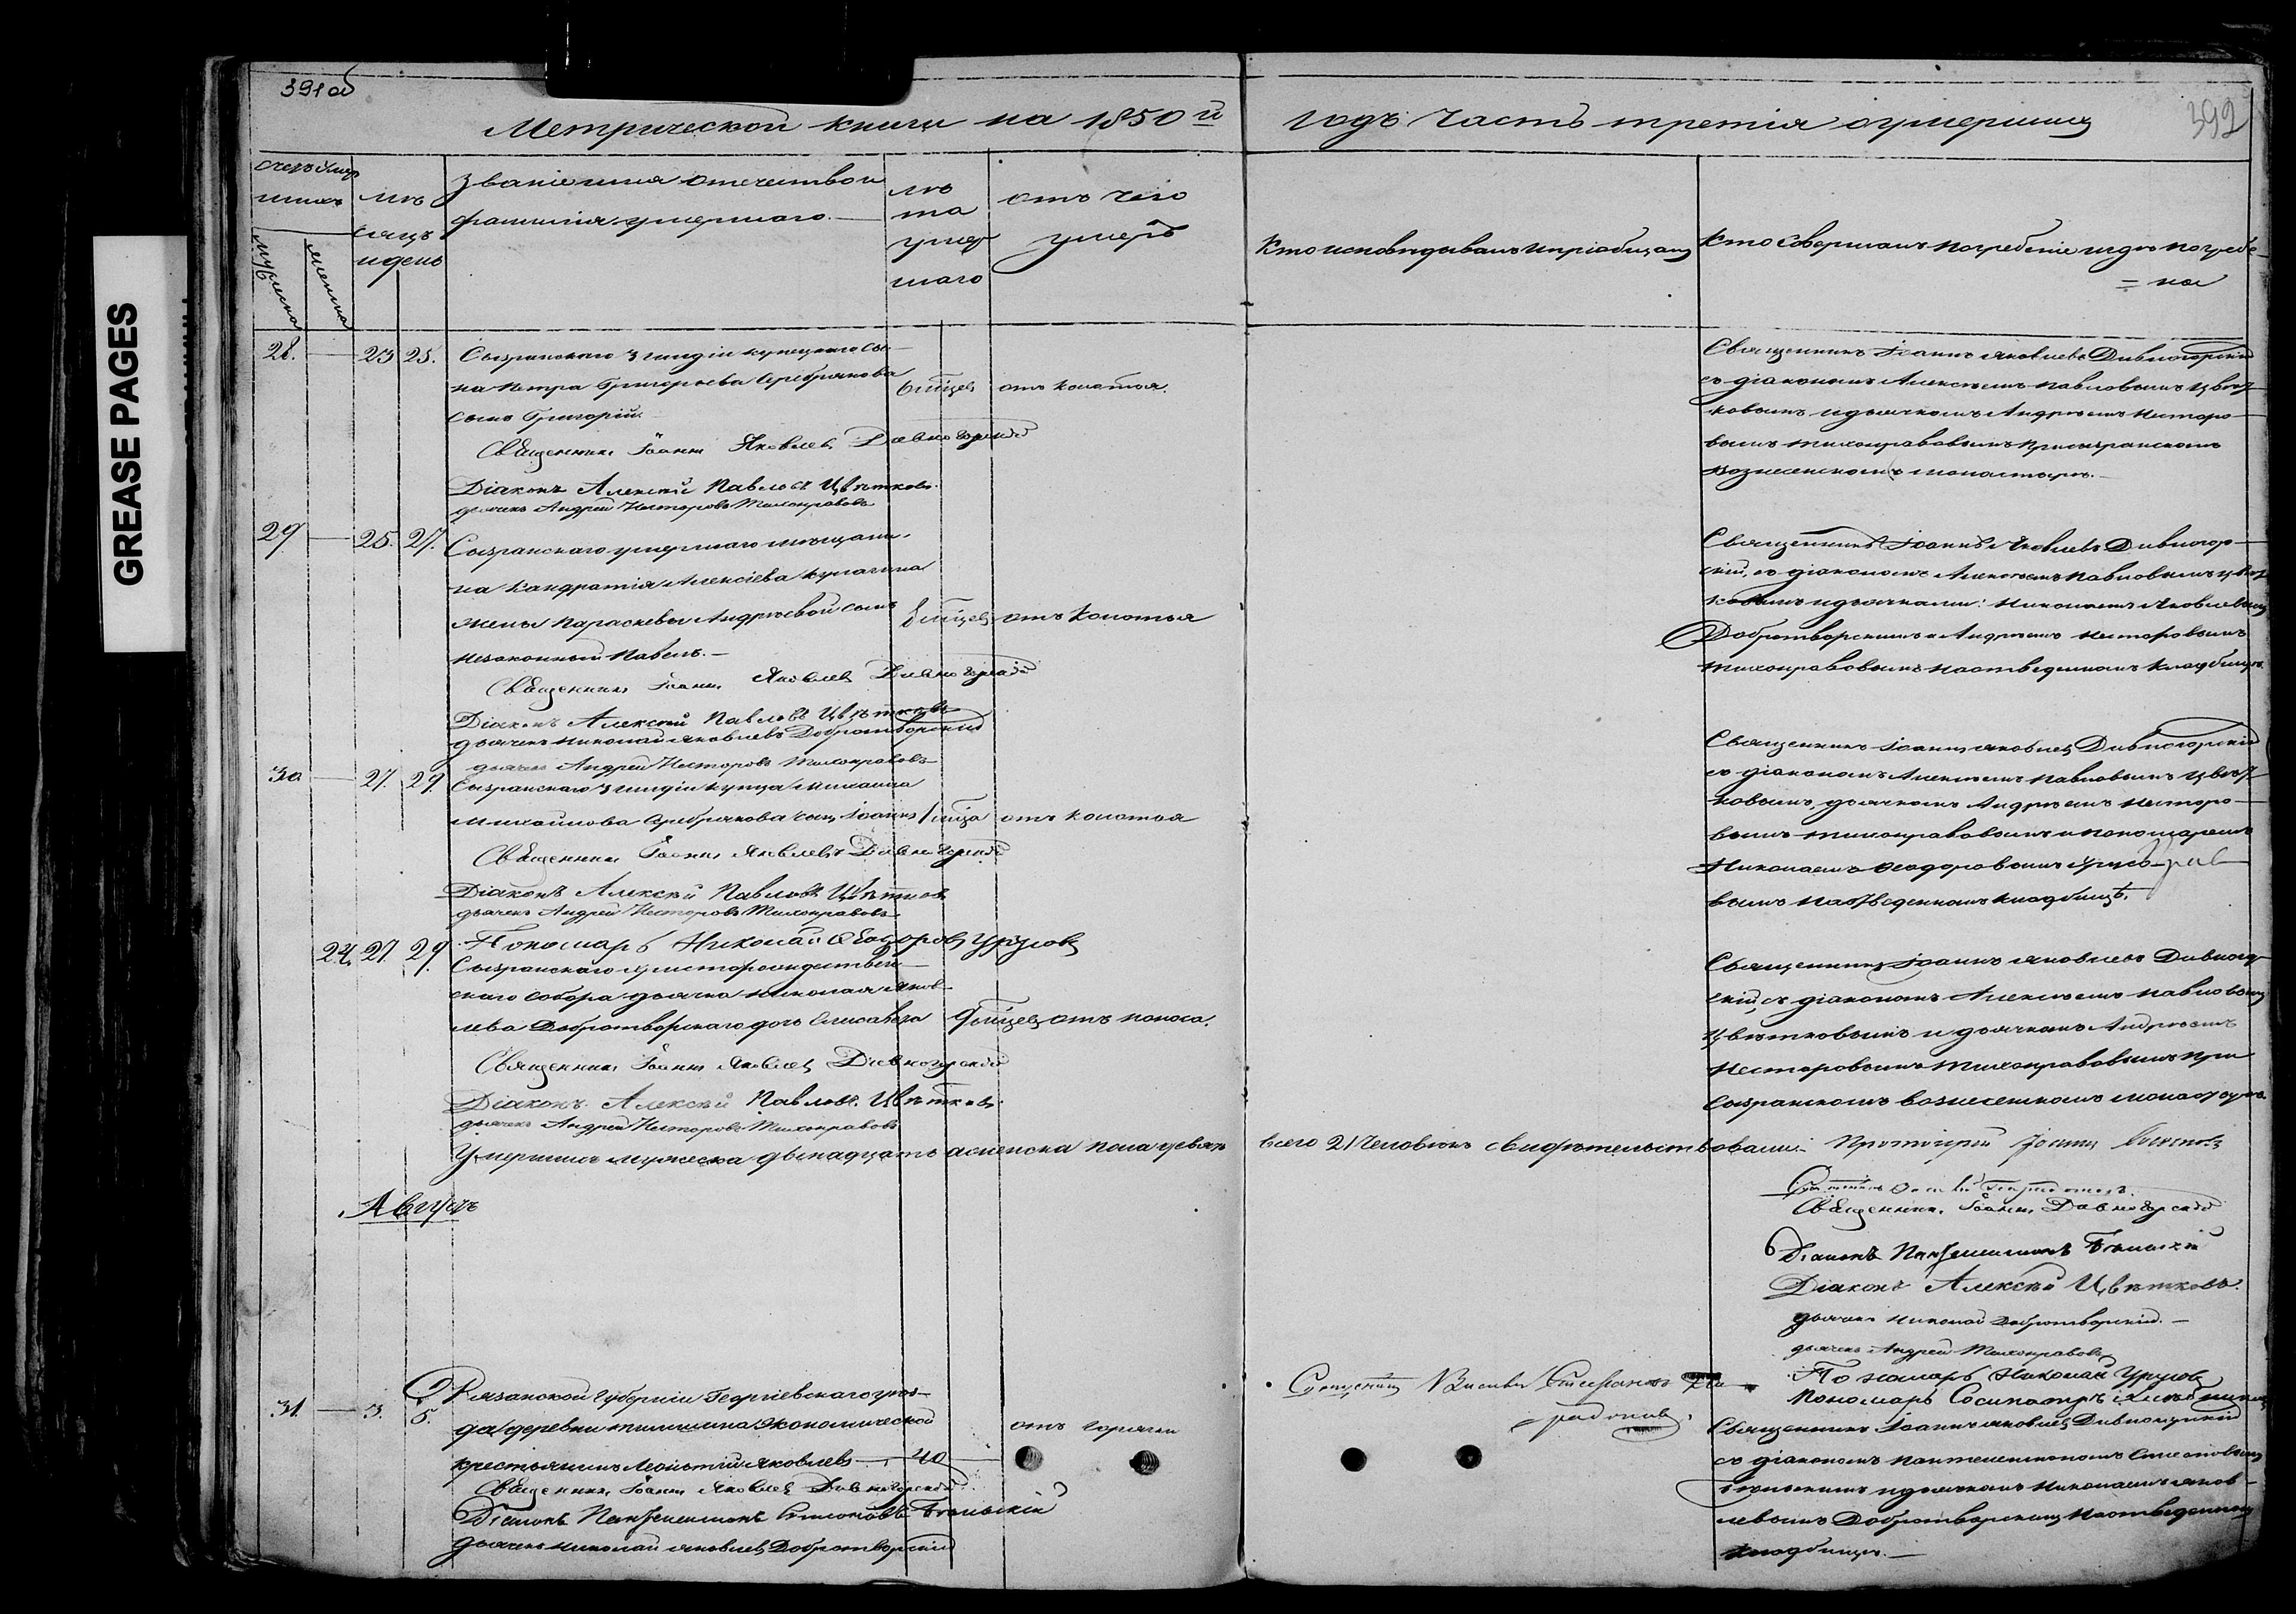 GREASE PAGES
391об
392
Метрической книги на 1850й годъ часть третія о умершихъ
счетъ умер
шихъ
мужеска
женска
мѣ
сяцъ
и день
званіе имя отечество и
фамилія умершаго.
лѣ
та
умер
шаго
отъ чего
умеръ
Кто исповѣдывалъ и пріобщалъ
Кто совершалъ погребеніе и гдѣ погребе=
=на
28. 23 25. Сызранскаго 3 гильдіи купецкаго сы-
на Петра Григорьева Серебрякова
сынъ Григорій.
6 мѣсец отъ колотья.
Священникъ Іоаннъ Яковлевъ Дивногорскій
Діаконъ Алексѣй Павловъ Цвѣтковъ.
дьячекъ Андрей Несторовъ Тихонравовъ
Священникъ Іоаннъ Яковлевъ Дивногорскій
съ діакономъ Алексѣемъ Павловымъ Цвѣт
ковымъ и дьячкомъ Андреемъ Несторо-
вымъ Тихонравовымъ при Сызранскомъ
Вознесенскомъ монастырѣ.
29 25. 27. Сызранскаго умершаго мѣщани-
на Кандратія Алексіева Кулагина
жены Параскевы Андреевой сынъ
незаконный Павелъ.
8 мѣсец отъ колотья
Священникъ Іоаннъ Яковлевъ Дивногорскій
Діаконъ Алексѣй Павловъ Цвѣтковъ
дьячекъ Николай Яковлевъ Добротворскій
дьячекъ Андрей Несторовъ Тихонравовъ
Священникъ Іоаннъ Яковлевъ Дивногор-
скій, съ діакономъ Алексѣемъ Павловымъ Цвѣт
ковымъ и дьячками: Николаемъ Яковлевымъ
Добротворскимъ и Андреемъ Несторовымъ
Тихонравовымъ на отведенномъ кладбищѣ.
30 27. 29. Сызранскаго 3 гильдіи купца Михаила
Михайлова Серебрякова сынъ Іоаннъ 1 мѣсца отъ колотья
Священникъ Іоаннъ Яковлевъ Дивногорскій
Діаконъ Алексѣй Павловъ Цвѣтковъ
дьячекъ Андрей Несторовъ Тихонравовъ
Пономарь Николай Ѳеодоровъ Урусовъ
Священникъ Іоаннъ Яковлевъ Дивногорскій
съ діакономъ Алексѣемъ Павловымъ Цвѣт
ковымъ, дьячкомъ Андреемъ Несторо-
вымъ Тихонравовымъ и пономаремъ
Николаемъ Ѳеодоровымъ Урусо-
вымъ на отведенномъ кладбищѣ.
24. 27 29. Сызранскаго Христорождествен-
скаго собора дьячка Николая Яков-
лева Добротворскаго дочь Елисавета 9 мѣсец отъ поноса.
Священникъ Іоаннъ Яковлевъ Дивногорскій
Діаконъ Алексѣй Павловъ Цвѣтковъ.
дьячекъ Андрей Несторовъ Тихонравовъ
Священникъ Іоаннъ Яковлевъ Дивногор
скій, съ діакономъ Алексѣемъ Павловымъ
Цвѣтковымъ и дьячкомъ Андреемъ
Несторовымъ Тихонравовымъ при
Сызранскомъ Вознесенскомъ монастырѣ.
Умершихъ мужеска двенадцать а женска пола девять всего 21 человѣкъ свидѣтельствовали: Протоіерей Іоаннъ
Священникъ Іоаннъ Дивногорскій
Діаконъ Пантелеимонъ Бѣльскій
Діаконъ Алексѣй Цвѣтковъ.
дьячекъ Николай Добротворскій.
дьячекъ Андрей Тихонравовъ
Пономарь Николай Урусовъ
Пономарь Сосипатръ
Августъ
31. 3. 5. Рязанской губерніи Георгіевскаго уѣз-
да деревни экономической
крестьянинъ Леонтій Яковлевъ 40
отъ горячки
Священникъ Іоаннъ Яковлевъ Дивногорскій
Діаконъ Пантелеимонъ Симоновъ Бѣльскій
Дьячекъ Николай Яковлевъ Добротворскій
Священникъ Василій Стефановъ
Священникъ Іоаннъ Яковлевъ Дивногорскій
съ діакономъ Пантелеимономъ Симоновымъ
Бѣльскимъ и дьячкомъ Николаемъ Яков-
левымъ Добротворскимъ на отведенномъ
кладбищѣ.